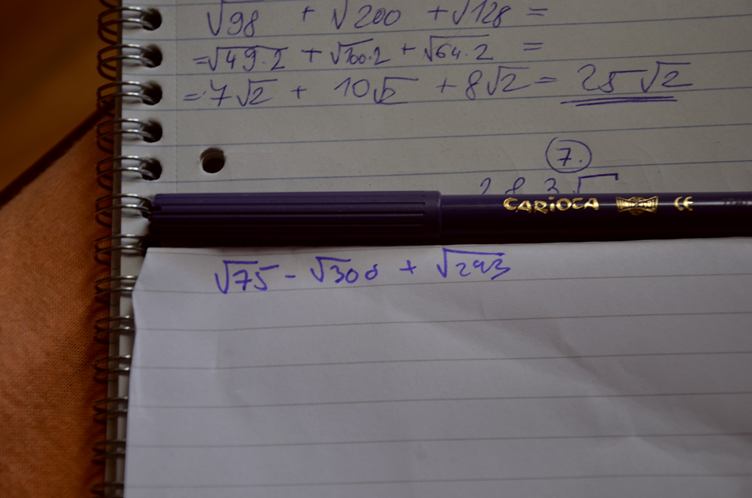 √98 + √200 + √128 =
=√49·2 + √100·2 + √64·2 =
=7√2 + 10√2 + 8√2 = 25√2
7.
CARIOCA CE
√75 - √300 + √243